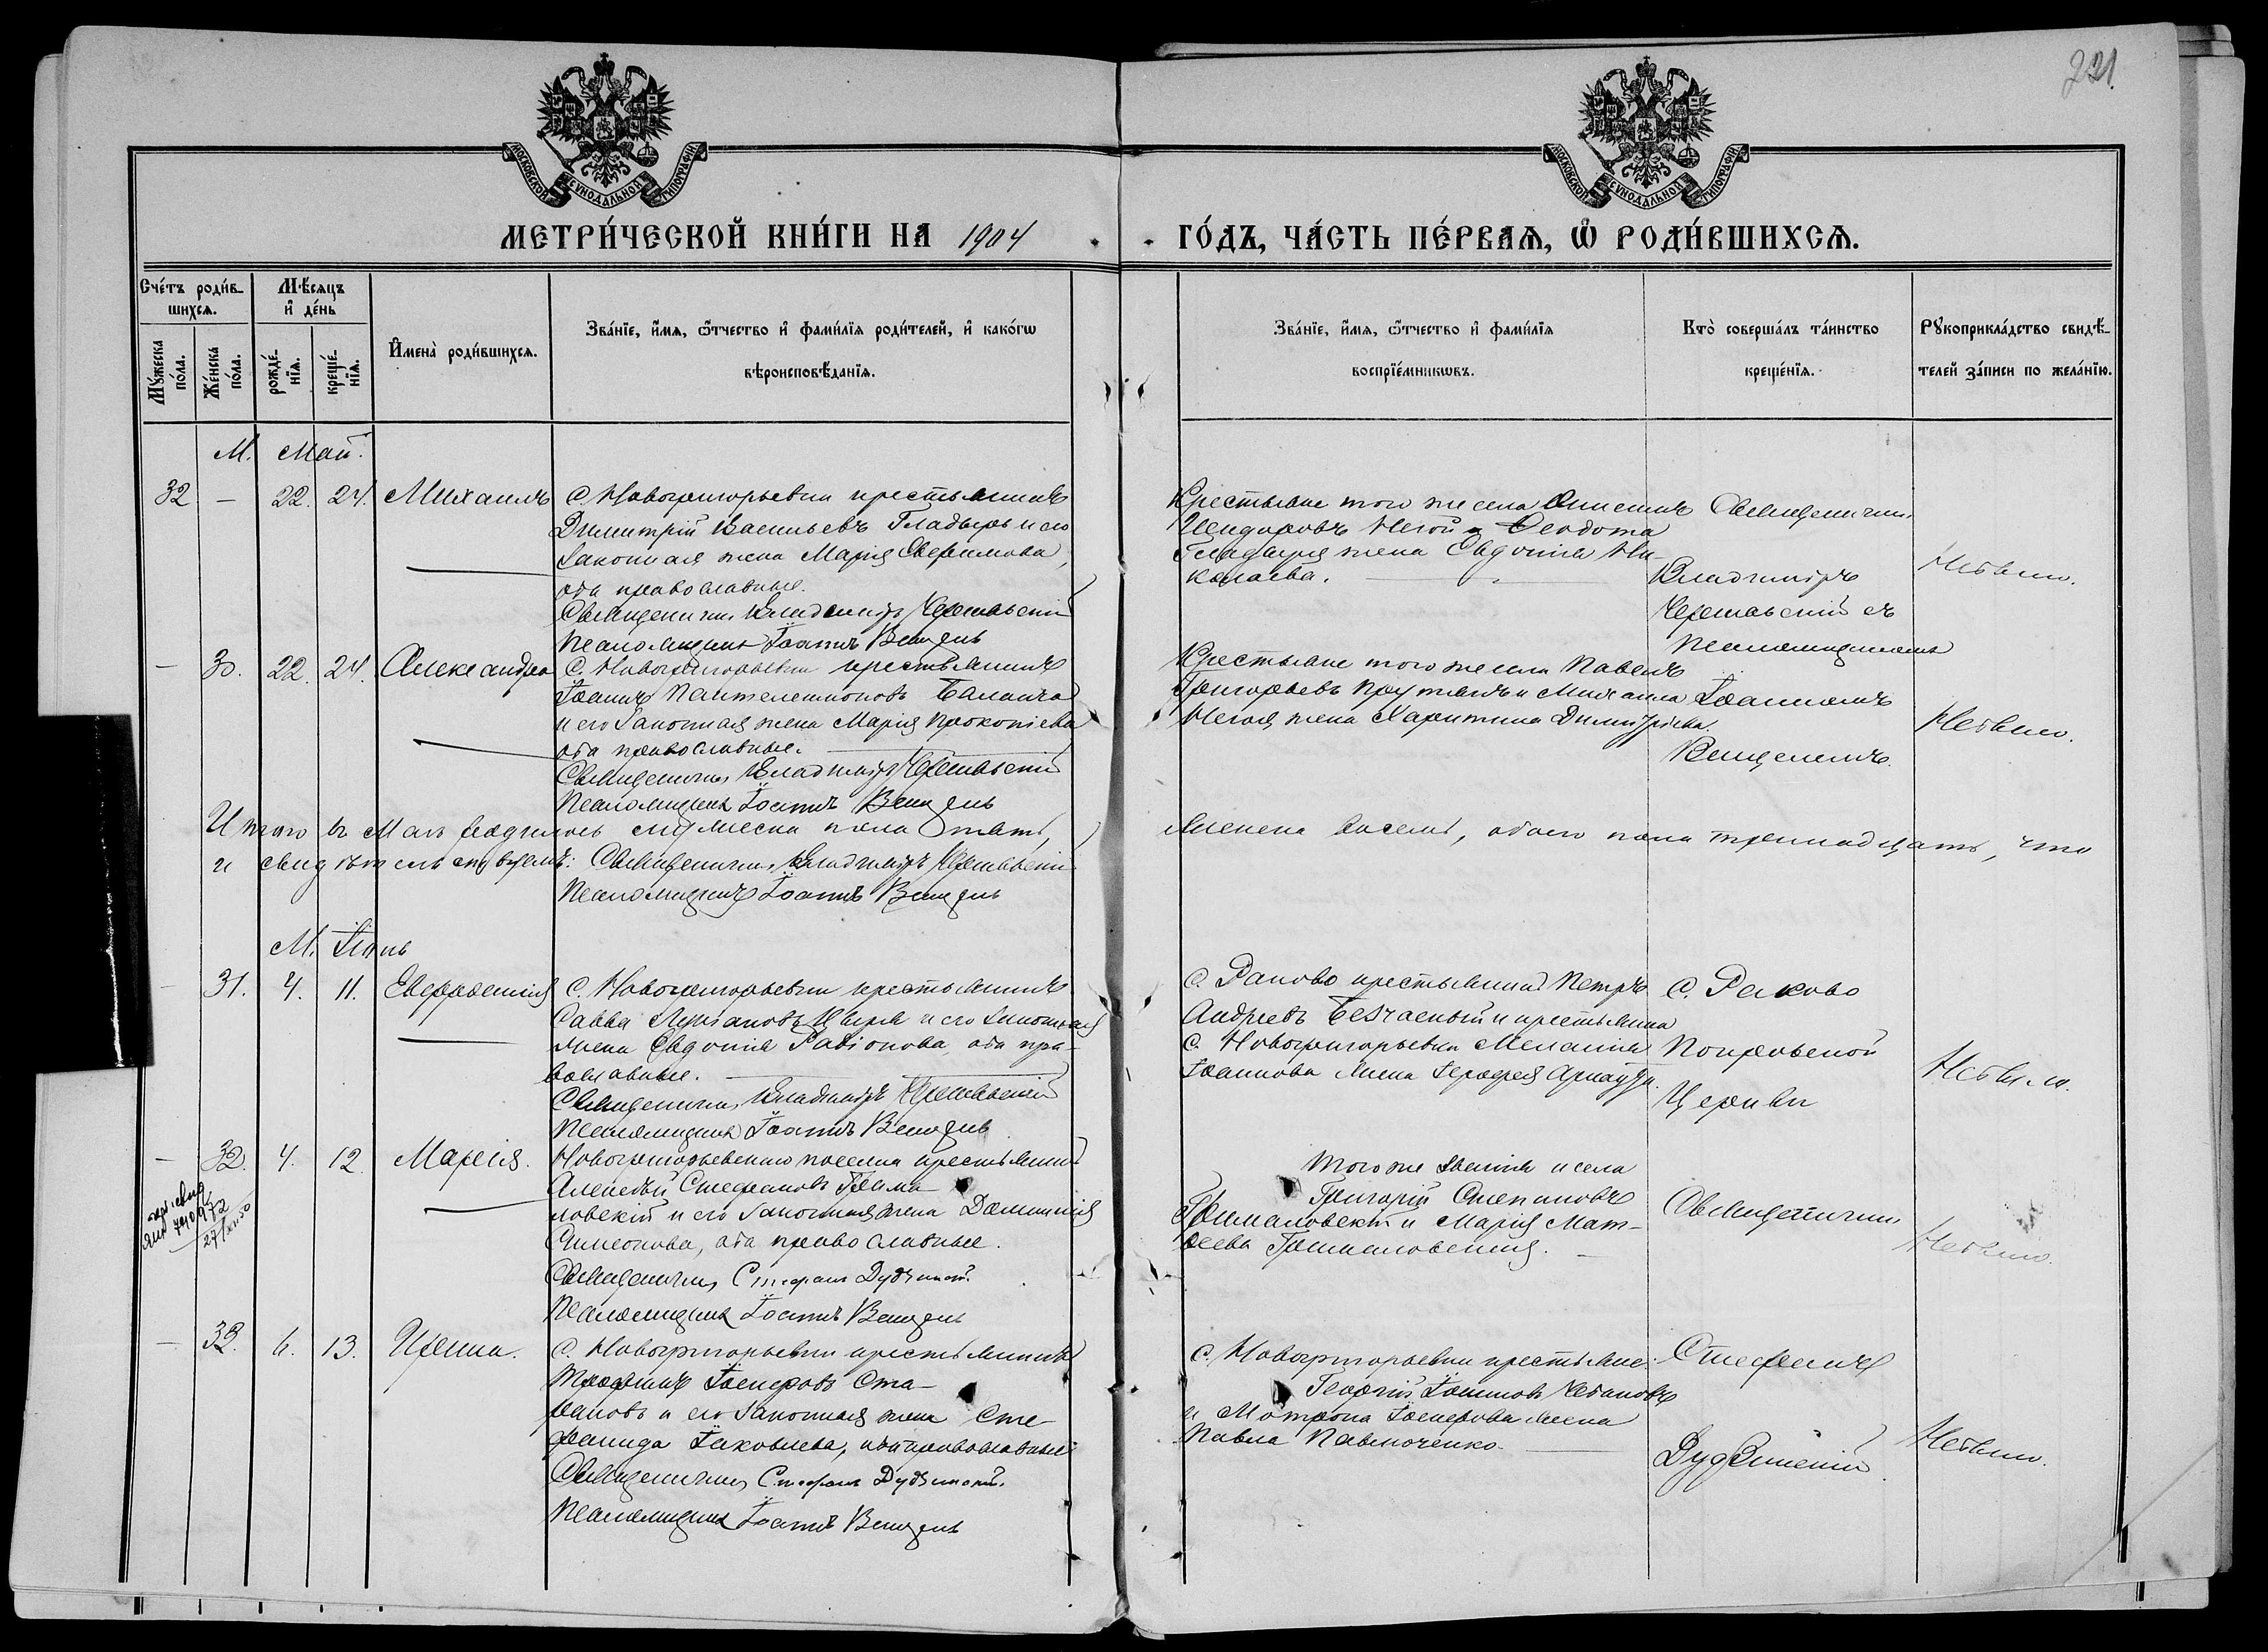 221
МОСКОВСКОЙ СѴНОДАЛЬНОЙ ТИПОГРАФІИ
МОСКОВСКОЙ СѴНОДАЛЬНОЙ ТИПОГРАФІИ
МЕТРИ́ЧЕСКОЙ КНИ́ГИ НА 1904
ГО́ДЪ, ЧА́СТЬ ПЕ́РВАѦ, Ѡ РОДИ́ВШИХСѦ.
Сче́тъ роди́в-
шихсѧ.
Мѣсяцъ
и де́нь
Мꙋ́жеска
по́ла.
Же́нска
по́ла.
рожде́-
нїѧ.
креще́-
нїѧ.
И҆мена̀ роди́вшихсѧ.
Зва́нїе, и҆́мѧ, ѻ҆́тчество и҆ фами́лїѧ роди́телей, и҆ како́гѡ
вѣроисповѣ́данїѧ.
Зва́нїе, и҆́мѧ, ѻ҆́тчество и҆ фами́лїѧ
воспрїе́мникѡвъ.
Кто̀ соверша́лъ та́инство
креще́нїѧ.
Рꙋкоприкла́дство свидѣ́-
телей за́писи по жела́нїю.
М. Май.
32 — 22. 24. Михаилъ
С. Новогригорьевки крестьянинъ
Димитрій Васильевъ Гладырь и его
законная жена Марія Ефимова,
оба православные.
Священникъ Владиміръ Чершавскій
Псаломщикъ Іоаннъ Венгель
Крестьяне того же села Онисимъ
Исидоровъ Негой и Феодота
Гладыря жена Евдокія Ни-
колаева.
Священникъ
Владиміръ
Чершавскій съ
псаломщикомъ
Іоанномъ
Венгелемъ.
Не было.
— 30. 22. 24. Александра
С. Новогригорьевки крестьянинъ
Іоаннъ Пантелеимоновъ Баланча
и его законная жена Марія Прокопіева
оба православные.
Священникъ Владиміръ Чершавскій
Псаломщикъ Іоаннъ Венгель
Крестьяне того же села Павелъ
Григорьевъ и Михаила
Негоя жена Харитина Димитріева.
Не было.
Итого въ Маѣ родилось мужеска пола пять,
женска восемь, обоего пола тринадцать, что
и свидѣтельствуемъ: Священникъ Владиміръ Чершавскій
Псаломщикъ Іоаннъ Венгель
М. Іюнь
— 31. 4. 11. Евфросинія
С. Новогригорьевки крестьянинъ
Савва Лукіановъ и его законная
жена Евдокія Родіонова, оба пра-
вославные.
Священникъ Владиміръ Чершавскій
Псаломщикъ Іоаннъ Венгель
С. Раково крестьянинъ Петръ
Андреевъ Безчасный и крестьянка
с. Новогригорьевки Меланія
Іоаннова жена Арнаута.
С. Раково
Покровской
Церкви
Не было.
— 32. 4. 12. Марѳа.
972
27/XI 50
Новогригорьевскаго поселка крестьянинъ
Алексѣй Стефановъ Грима-
ловскій и его законная жена Домникія
Симеонова, оба православные.
Священникъ Стефанъ Дудзинскій.
Псаломщикъ Іоаннъ Венгель
Того же званія и села
Григорій Степановъ
Грималовскій и Марія Мат-
ѳеева Грималовская.
Священникъ
Не было.
— 33. 6. 13. Ирина.
С. Новогригорьевки крестьянинъ
Трофимъ Іосифовъ Ста-
риковъ и его законная жена Сте-
фанида Іаковлева, оба православные
Священникъ Стефанъ Дудзинскій.
Псаломщикъ Іоаннъ Венгель
С. Новогригорьевки крестьяне:
Георгій Іоанновъ Чебановъ
и Матрона Іосифова жена
Павла Павлюченко.
Стефанъ
Дудзинскій.
Не было.